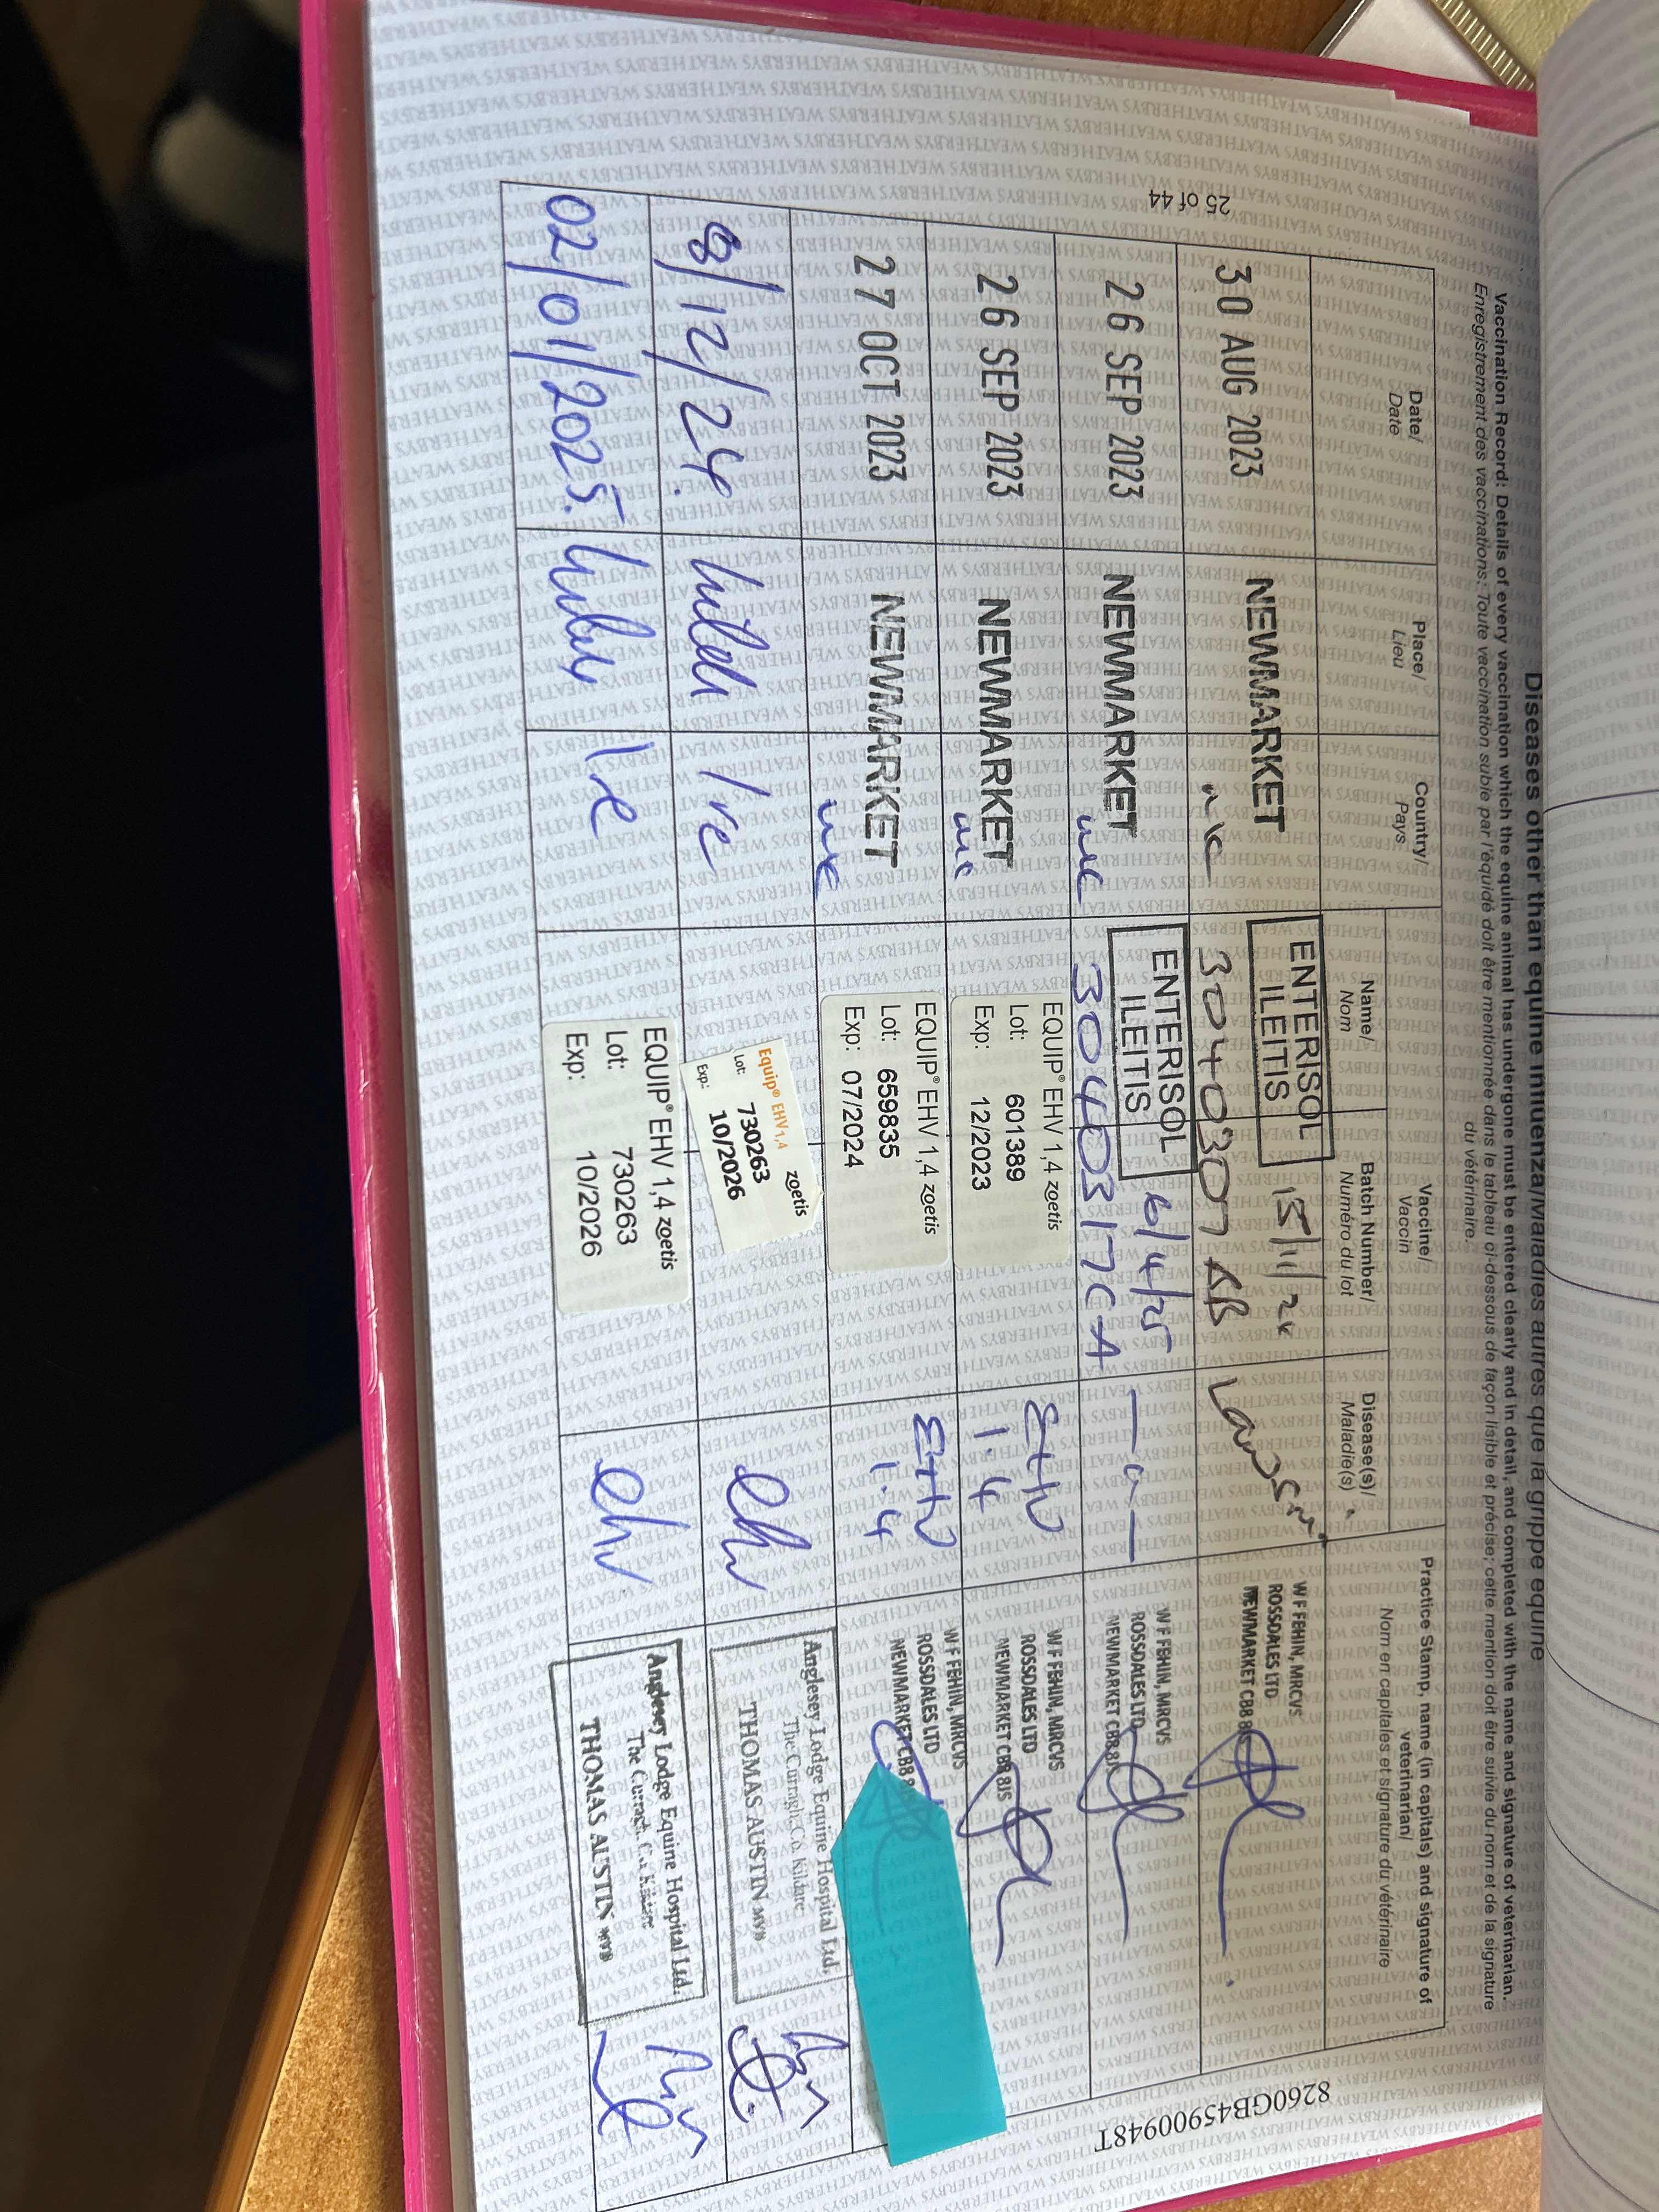 Diseases other than equine influenza/Maladies autres que la grippe equine
Vaccination Record: Details of every vaccination which the equine animal has undergone must be entered clearly and in detail, and completed with the name and signature of veterinarian.
Enregistrement des vaccinations: Toute vaccination subie par l'équidé doit être mentionnée dans le tableau ci-dessous de façon lisible et précise; cette mention doit être suivie du nom et de la signature
du vétérinaire.
Date/
Date
Place/
Lieu
Country/
Pays
Vaccine/
Vaccin
Name/
Nom
Batch Number/
Numéro du lot
Disease(s)/
Maladie(s)
Practice Stamp, name (in capitals) and signature of
veterinarian/
Nom en capitales et signature du vétérinaire
30 AUG 2023
NEWMARKET
ENTERISOL
ILEITIS
3040307 AB
W F FEHIN, MRCVS
ROSSDALES LTD
NEWMARKET CB8
26 SEP 2023
NEWMARKET
ENTERISOL
ILEITIS
6/4/25
3040317CA
W F FEHIN, MRCVS
ROSSDALES LTD
NEWMARKET CB8 8JS
26 SEP 2023
NEWMARKET
EQUIP® EHV 1,4 zoetis
Lot: 601389
Exp: 12/2023
EHV
1.4
W F FEHIN, MRCVS
ROSSDALES LTD
NEWMARKET CB8 8JS
27 OCT 2023
NEWMARKET
EQUIP® EHV 1,4 zoetis
Lot: 659835
Exp: 07/2024
EHV
1.4
W F FEHIN, MRCVS
ROSSDALES LTD
NEWMARKET CB8
8/12/24.
Ire
Equip® EHV 1,4 zoetis
Lot: 730263
Exp.: 10/2026
ehv
Anglesey Lodge Equine Hospital Ltd.
The Curragh, Co. Kildare
THOMAS AUSTIN MVB
02/01/2025.
Ire
EQUIP® EHV 1,4 zoetis
Lot: 730263
Exp: 10/2026
ehv
Anglesey Lodge Equine Hospital Ltd.
The Curragh, Co. Kildare
THOMAS AUSTIN MVB
25 of 44
8260GB45900948T